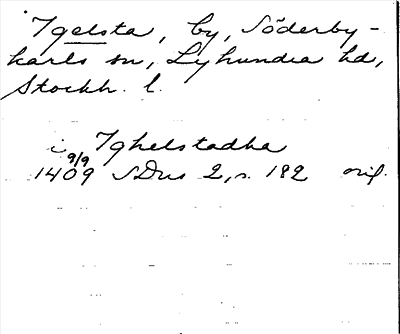 Igelsta, by, Söderby-
karls sn, Lyhundra hd,
Stockh. l.
i Ighelstadha
9/9
1409 SDns 2, s. 182 orig.